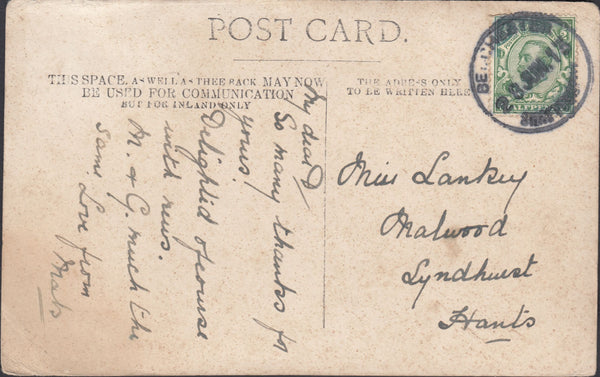 POST CARD.
THIS SPACE, AS WELL AS THEE BACK MAY NOW
BE USED FOR COMMUNICATION
BUT FOR INLAND ONLY
THE ADRES ONLY
TO BE WRITTEN HERE
My dear D
So many thanks for
yours!
Delighted of course
with news.
M. & G. much the
same. Love from
Mats
Miss Lankey
Malwood
Lyndhurst
Hants